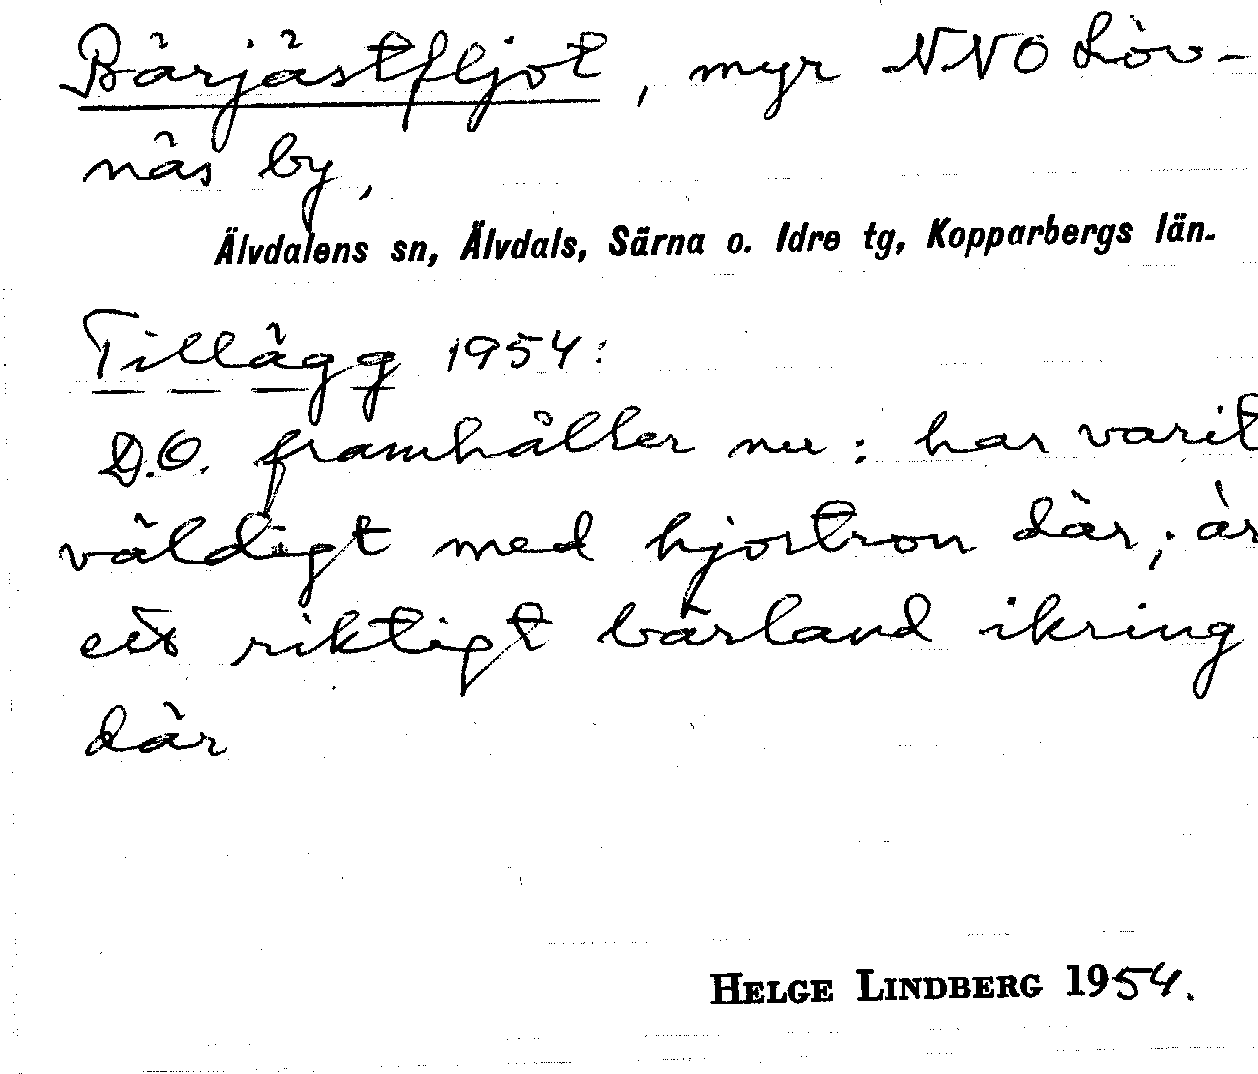 Bärjästfljot, myr NNO Löv-
näs by,
Älvdalens sn, Älvdals, Särna o. Idre tg, Kopparbergs län.
Tillägg 1954:
D.O. framhåller nu: har varit
väldigt med hjortron där; är
ett riktigt bärland ikring
där
HELGE LINDBERG 1954.